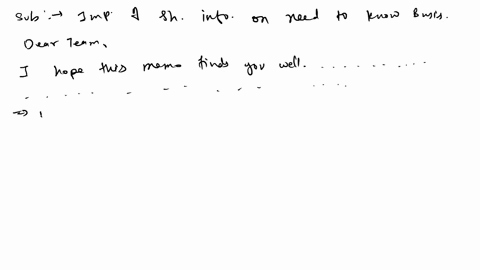 Sub:→ Imp. of Sh. info. on need to know Basis.
Dear Team,
I hope this memo finds you well. ...........
.................
⇒ 1